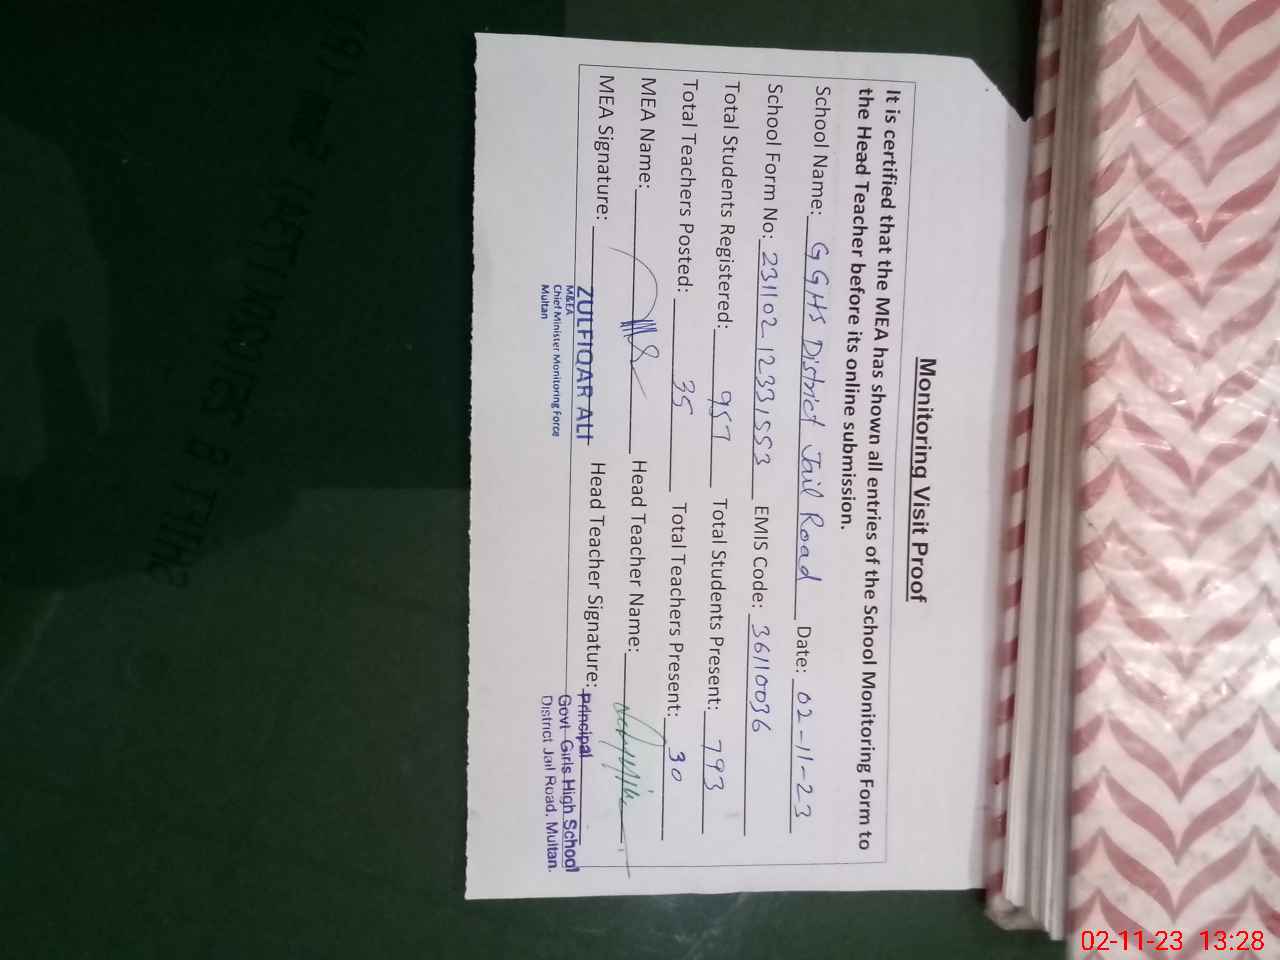 Monitoring Visit Proof
It is certified that the MEA has shown all entries of the School Monitoring Form to
the Head Teacher before its online submission.
School Name: GGHS District Jail Road Date: 02-11-23
School Form No: 231102-12331553 EMIS Code: 36110036
Total Students Registered: 957 Total Students Present: 793
Total Teachers Posted: 35 Total Teachers Present: 30
MEA Name: Head Teacher Name:
MEA Signature: Head Teacher Signature:
ZULFIQAR ALI
M&EA
Chief Minister Monitoring Force
Multan
Principal
Govt Girls High School
District Jail Road, Multan.
02-11-23 13:28